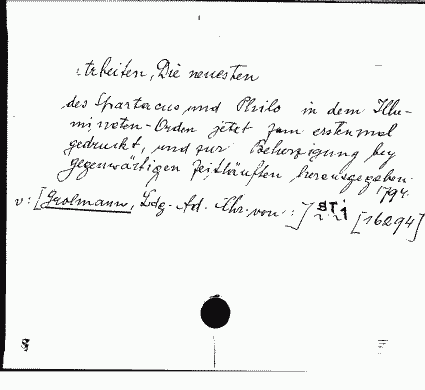 Arbeiten, Die neuesten
des Spartacus und Philo in dem Illu-
minaten-Orden jetzt zum erstenmal
gedruckt, und zur Beherzigung bey
gegenwärtigen Zeitläuften herausgegeben.
1794.
v: [Grolmann, Ldg. Ad. Chr. von :] STI [16294]